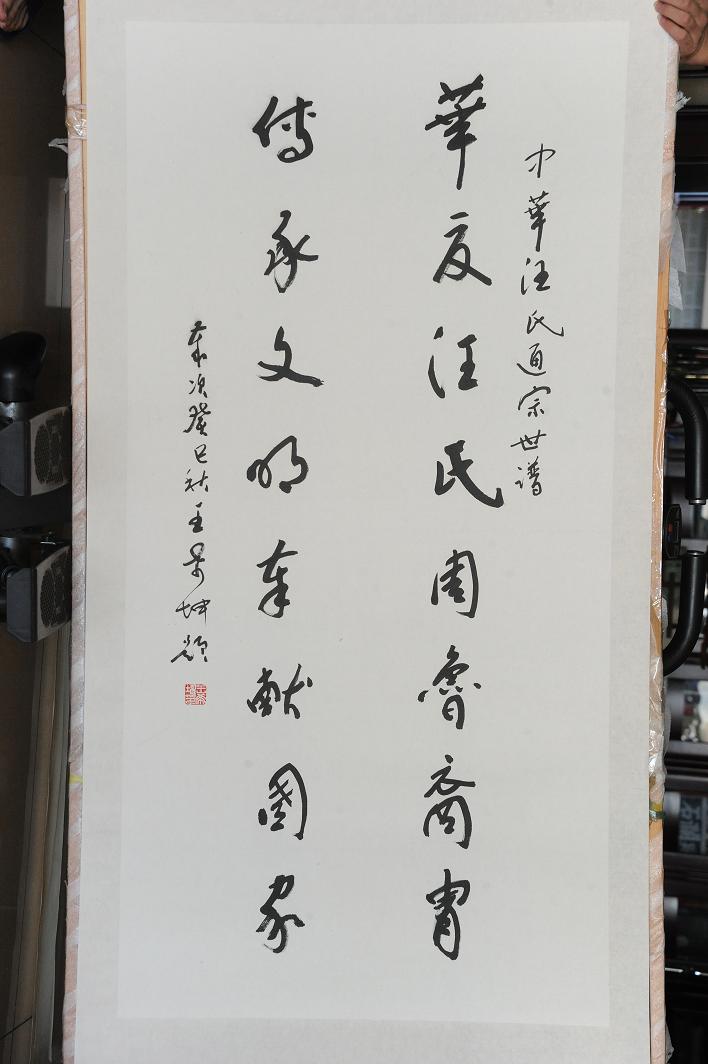 中華汪氏通宗世谱
華夏汪氏周魯裔胄
傳承文明奉獻國家
歲次癸巳秋王景坤題